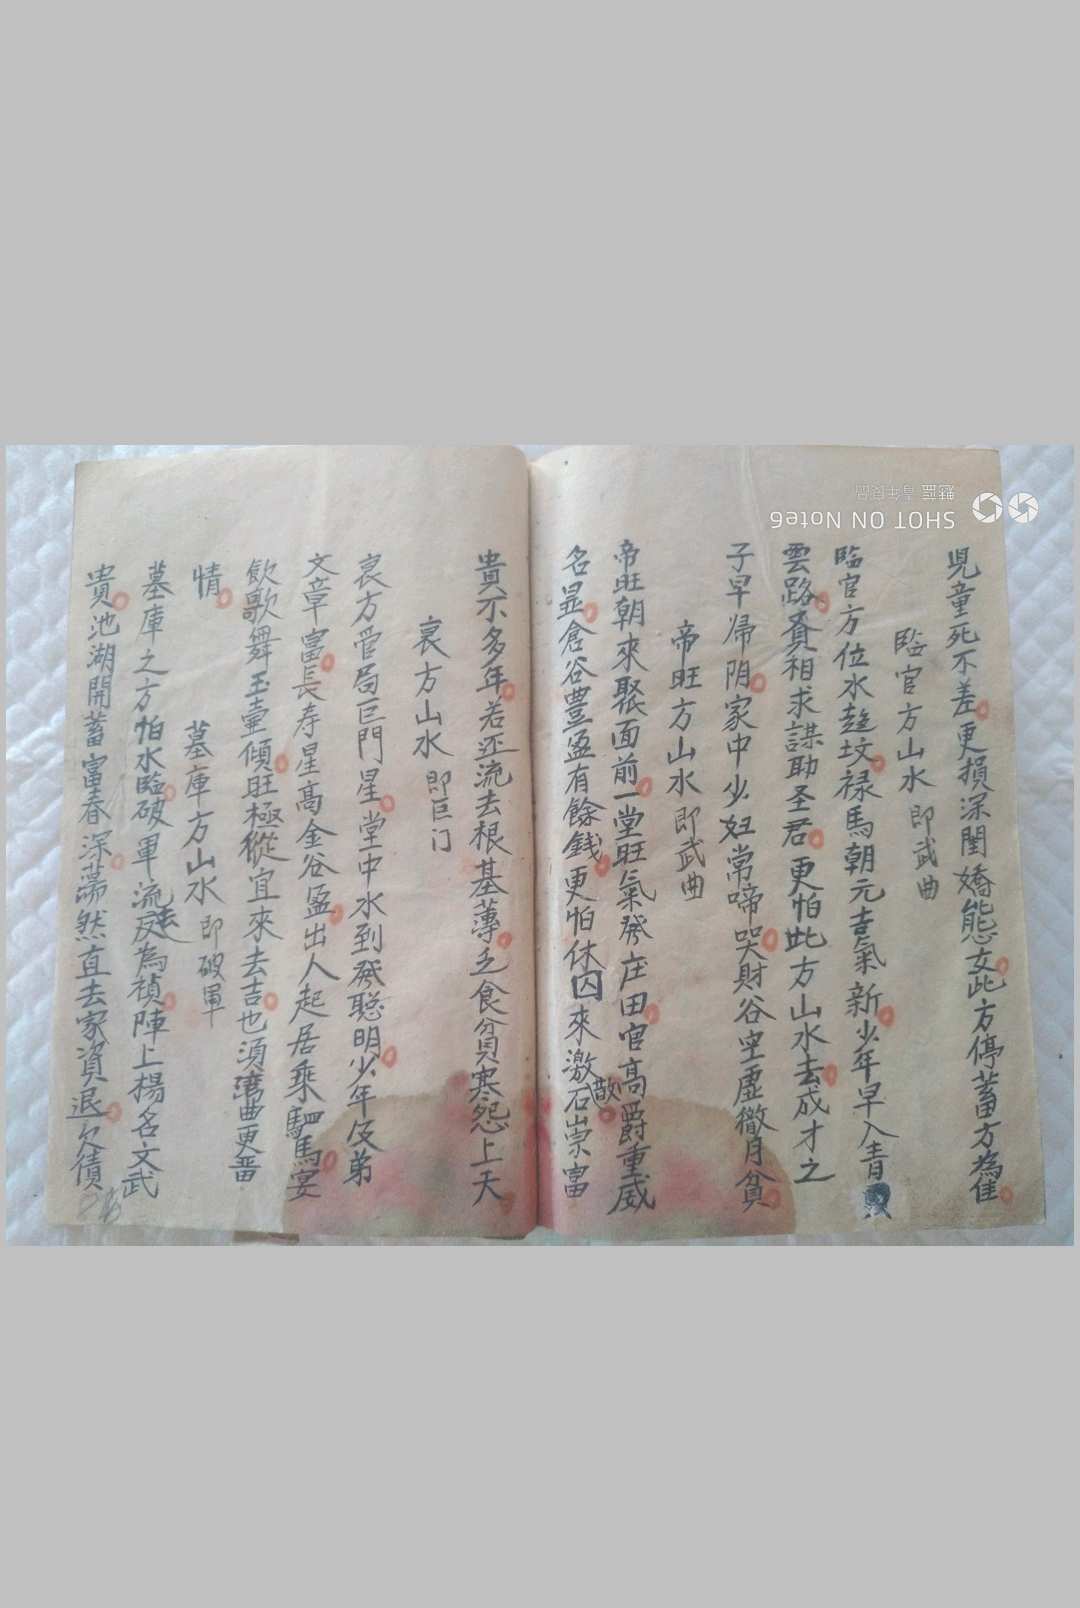 児童死不差更損深閨嬌態女此方停蓄方為佳
臨官方山水 即武曲
臨官方位水趨坟禄馬朝元吉氣新少年早入青
雲路貴相求謀助圣君更怕此方山水去成才之
子早帰阴家中少妇常啼哭財谷空虚徹月貧
帝旺方山水 即武曲
帝旺朝來聚面前一堂旺氣発庄田官高爵重威
名显倉谷豊盈有餘錢更怕休囚來激散石崇富
貴不多年若还流去根基薄乏食貧寒怨上天
衰方山水 即巨门
衰方管局巨門星堂中水到発聪明少年伋弟
文章富長寿星高金谷盈出人起居乘駟馬宴
飲歌舞玉壷傾旺極縱宜來去吉也須曲更
情
墓庫方山水 即破軍
墓庫之方怕水臨破軍流去為禎陣上揚名文武
貴池湖開蓄富春深蕩然直去家資退欠債
SHOT ON Note6
魅蓝 青年良品